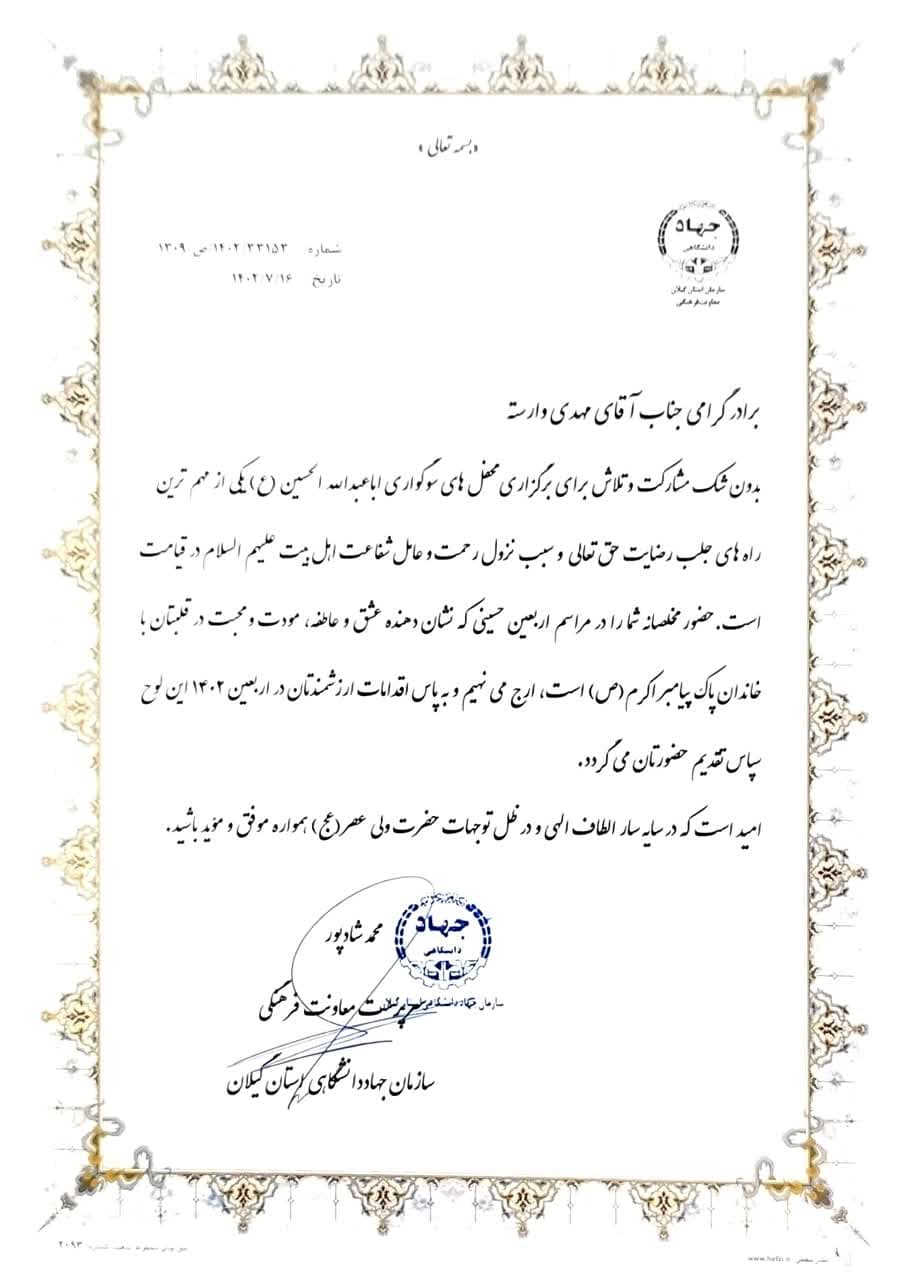 «بسمه تعالی»
جهاد
دانشگاهی
سازمان استان گیلان
معاونت فرهنگی
شماره ۱۴۰۲/۳۳۱۵۳/ص ۱۳۰۹
تاریخ ۱۴۰۲/۷/۱۶
برادر گرامی جناب آقای مهدی وارسته
بدون شک مشارکت و تلاش برای برگزاری محفل های سوگواری اباعبدالله الحسین (ع) یکی از مهم ترین
راه های جلب رضایت حق تعالی و سبب نزول رحمت و عامل شفاعت اهل بیت علیهم السلام در قیامت
است. حضور مخلصانه شما را در مراسم اربعین حسینی که نشان دهنده عشق و عاطفه، مودت و محبت در قلبتان با
خاندان پاک پیامبر اکرم (ص) است، ارج می نهیم و به پاس اقدامات ارزشمندتان در اربعین ۱۴۰۲ این لوح
سپاس تقدیم حضورتان می گردد.
امید است که در سایه سار الطاف الهی و در ظل توجهات حضرت ولی عصر (عج) همواره موفق و مؤید باشید.
جهاد
دانشگاهی
سازمان جهاددانشگاهی استان گیلان
محمد شادپور
سرپرست معاونت فرهنگی
سازمان جهاددانشگاهی استان گیلان
۲۰۹۳